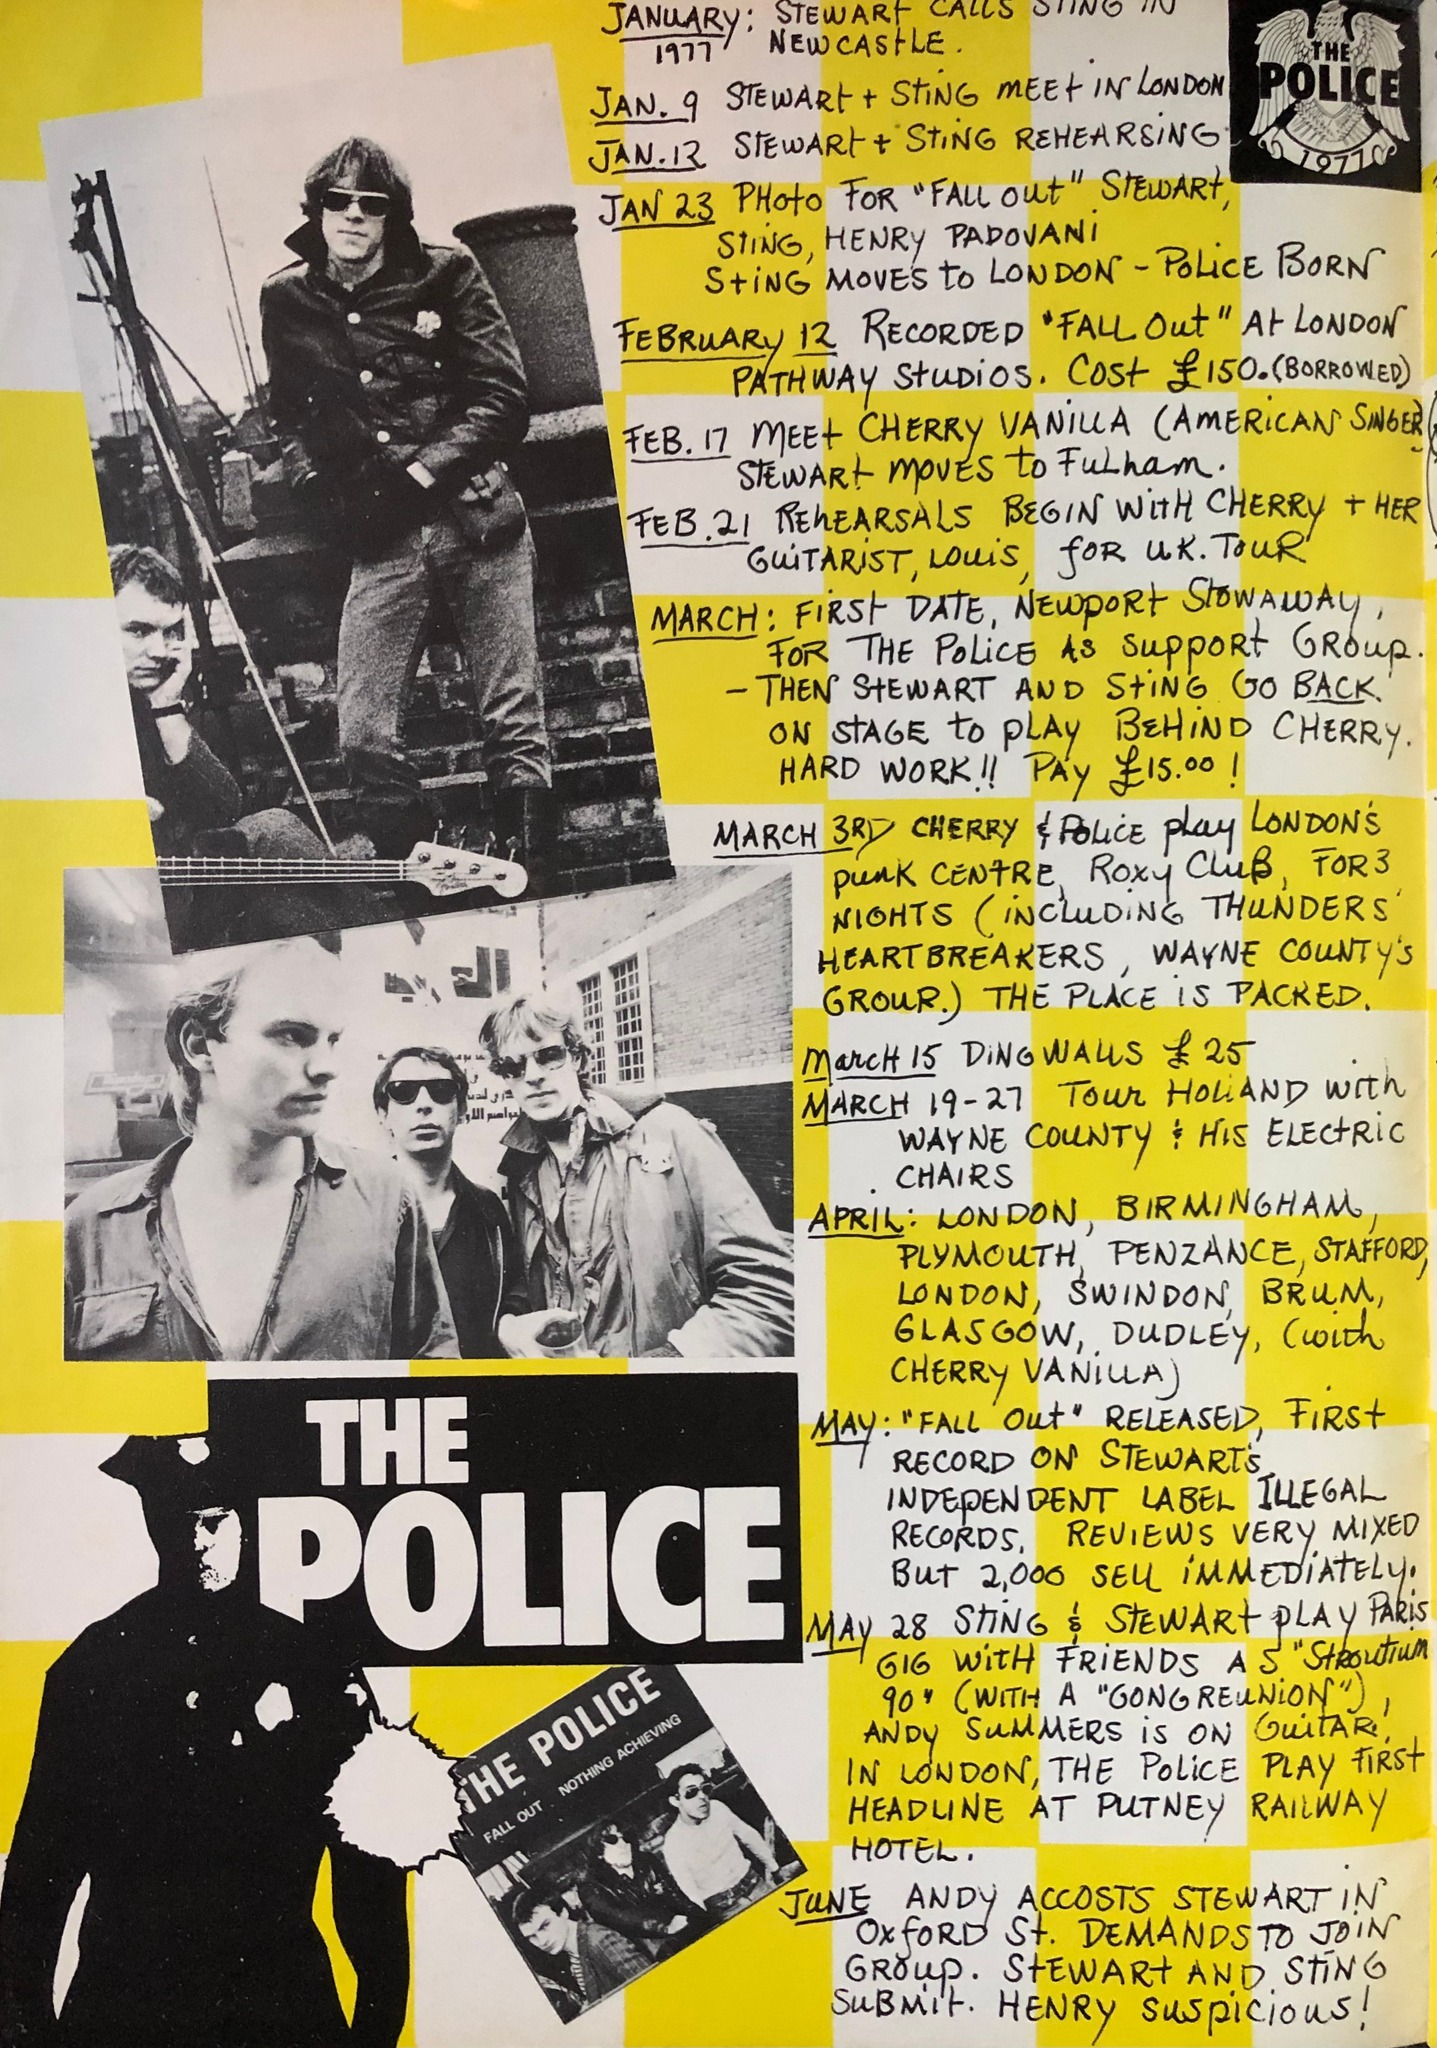 JANUARY: STEWART CALLS STING IN
1977 NEWCASTLE.
JAN. 9 STEWART + STING MEET IN LONDON
JAN. 12 STEWART + STING REHEARSING
JAN 23 PHOTO FOR "FALL OUT" STEWART,
STING, HENRY PADOVANI
STING MOVES TO LONDON - POLICE BORN
FEBRUARY 12 RECORDED "FALL OUT" AT LONDON
PATHWAY STUDIOS. COST £150. (BORROWED)
FEB. 17 MEET CHERRY VANILLA (AMERICAN SINGER
STEWART MOVES TO FULHAM.
FEB. 21 REHEARSALS BEGIN WITH CHERRY + HER
GUITARIST, LOUIS, FOR U.K. TOUR
MARCH: FIRST DATE, NEWPORT STOWAWAY,
FOR THE POLICE AS SUPPORT GROUP.
- THEN STEWART AND STING GO BACK
ON STAGE TO PLAY BEHIND CHERRY.
HARD WORK!! PAY £15.00!
MARCH 3RD CHERRY & POLICE PLAY LONDON'S
PUNK CENTRE, ROXY CLUB, FOR 3
NIGHTS (INCLUDING THUNDERS'
HEARTBREAKERS, WAYNE COUNTY'S
GROUP.) THE PLACE IS PACKED.
MARCH 15 DINGWALLS £25
MARCH 19-27 TOUR HOLLAND WITH
WAYNE COUNTY & HIS ELECTRIC
CHAIRS
APRIL: LONDON, BIRMINGHAM,
PLYMOUTH, PENZANCE, STAFFORD,
LONDON, SWINDON, BRUM,
GLASGOW, DUDLEY, (WITH
CHERRY VANILLA)
MAY: "FALL OUT" RELEASED, FIRST
RECORD ON STEWART'S
INDEPENDENT LABEL ILLEGAL
RECORDS. REVIEWS VERY MIXED
BUT 2,000 SELL IMMEDIATELY.
MAY 28 STING & STEWART PLAY PARIS
GIG WITH FRIENDS AS "STRONTIUM
90" (WITH A "GONG REUNION"),
ANDY SUMMERS IS ON GUITAR.
IN LONDON, THE POLICE PLAY FIRST
HEADLINE AT PUTNEY RAILWAY
HOTEL.
JUNE ANDY ACCOSTS STEWART IN
OXFORD ST. DEMANDS TO JOIN
GROUP. STEWART AND STING
SUBMIT. HENRY SUSPICIOUS!
THE
POLICE
1977
THE
POLICE
THE POLICE
FALL OUT NOTHING ACHIEVING